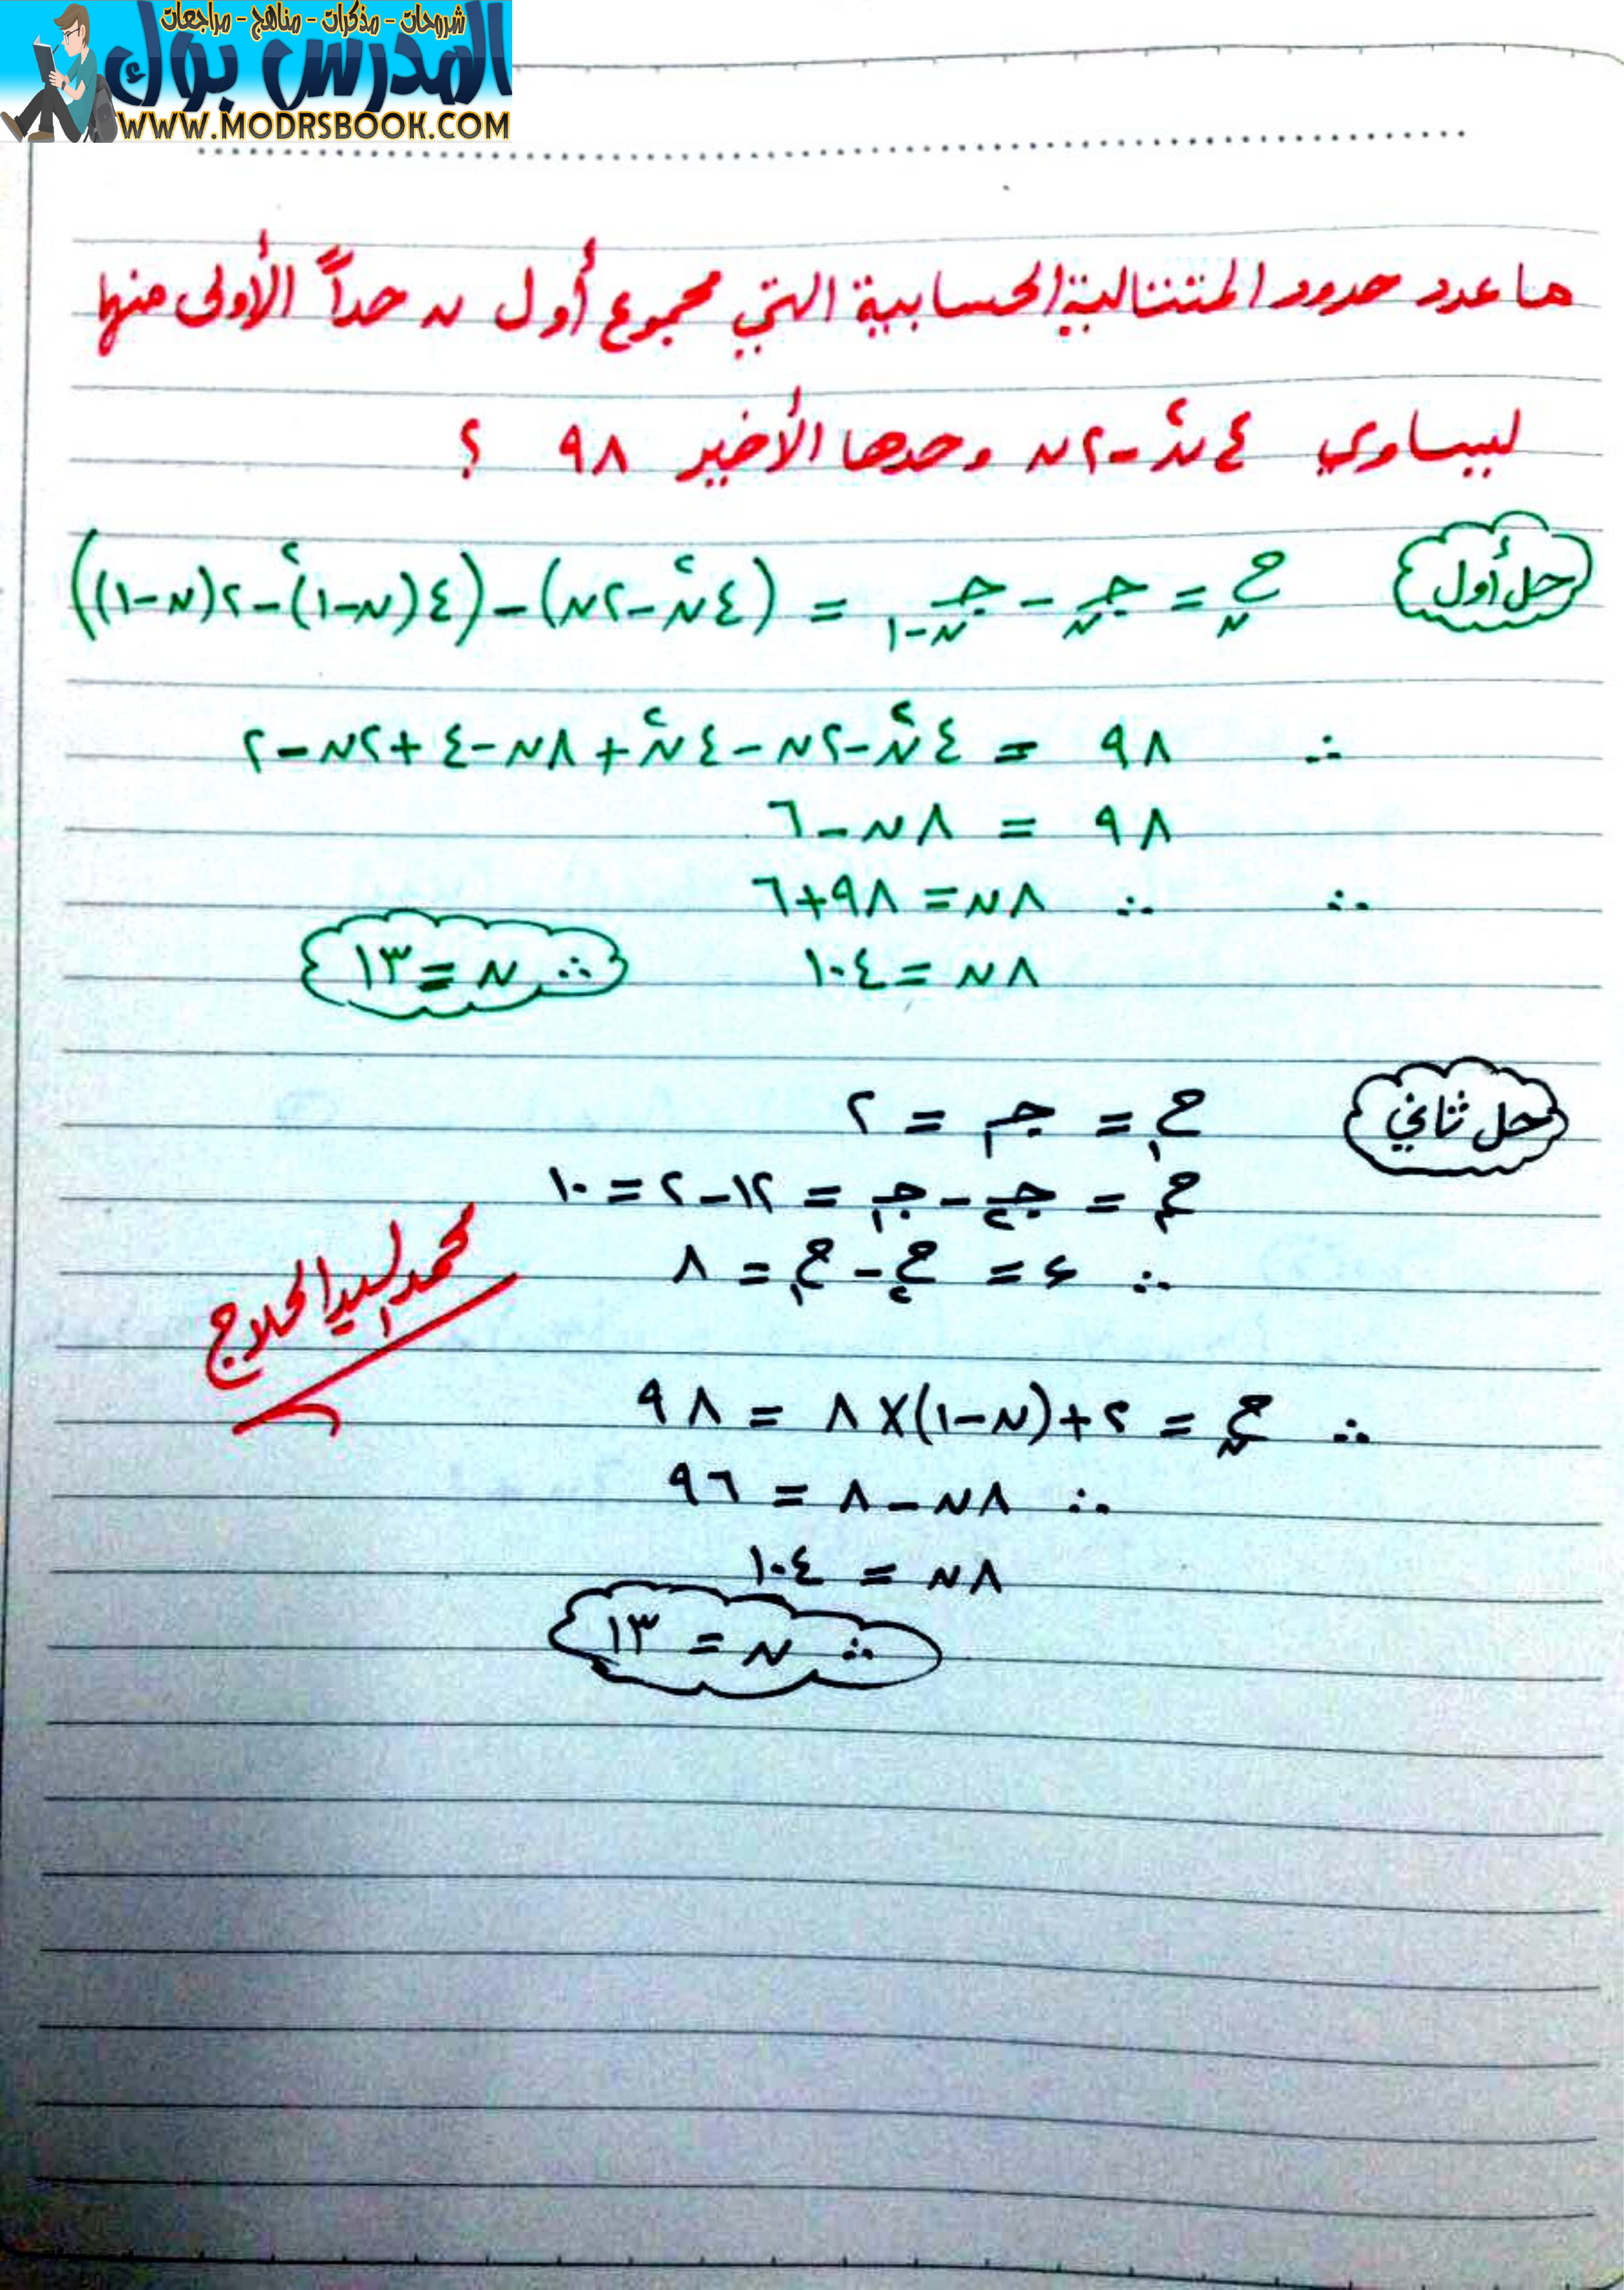 شروحات - مذكرات - مناهج - مراجعات
المدرس بوك
WWW.MODRSBOOK.COM
ما عدد حدود المتتالية الحسابية التي مجموع أول ن حداً الأولى منها
ليساوي ٤ن٢ - ٢ن وحدها الأخير ٩٨ ؟
حل أول ح ن = جـ ن - جـ ن-١ = (٤ن٢ - ٢ن) - (٤(ن-١)٢ - ٢(ن-١))
∴ ٩٨ = ٤ن٢ - ٢ن - ٤ن٢ + ٨ن - ٤ + ٢ن - ٢
٩٨ = ٨ن - ٦
∴ ∴ ٨ن = ٩٨ + ٦
٨ن = ١٠٤ ∴ ن = ١٣
حل ثاني ح١ = جـ١ = ٢
ح٢ = جـ٢ - جـ١ = ١٢ - ٢ = ١٠
∴ ء = ح٢ - ح١ = ٨
محمد السيد الحلاج
∴ ح ن = ٢ + (ن - ١) × ٨ = ٩٨
∴ ٨ن - ٨ = ٩٦
٨ن = ١٠٤
∴ ن = ١٣